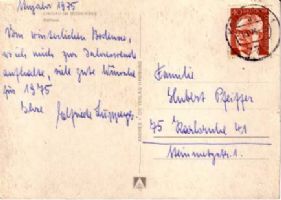 Neujahr 1975
Vom winterlichen Bodensee,
wo ich mich zur Jahreswende
aufhalte, viele gute Wünsche
für 1975
Ihre Elfriede
Familie
Hubert Pfeiffer
75 Karlsruhe 41
Steinmetzstr. 1.